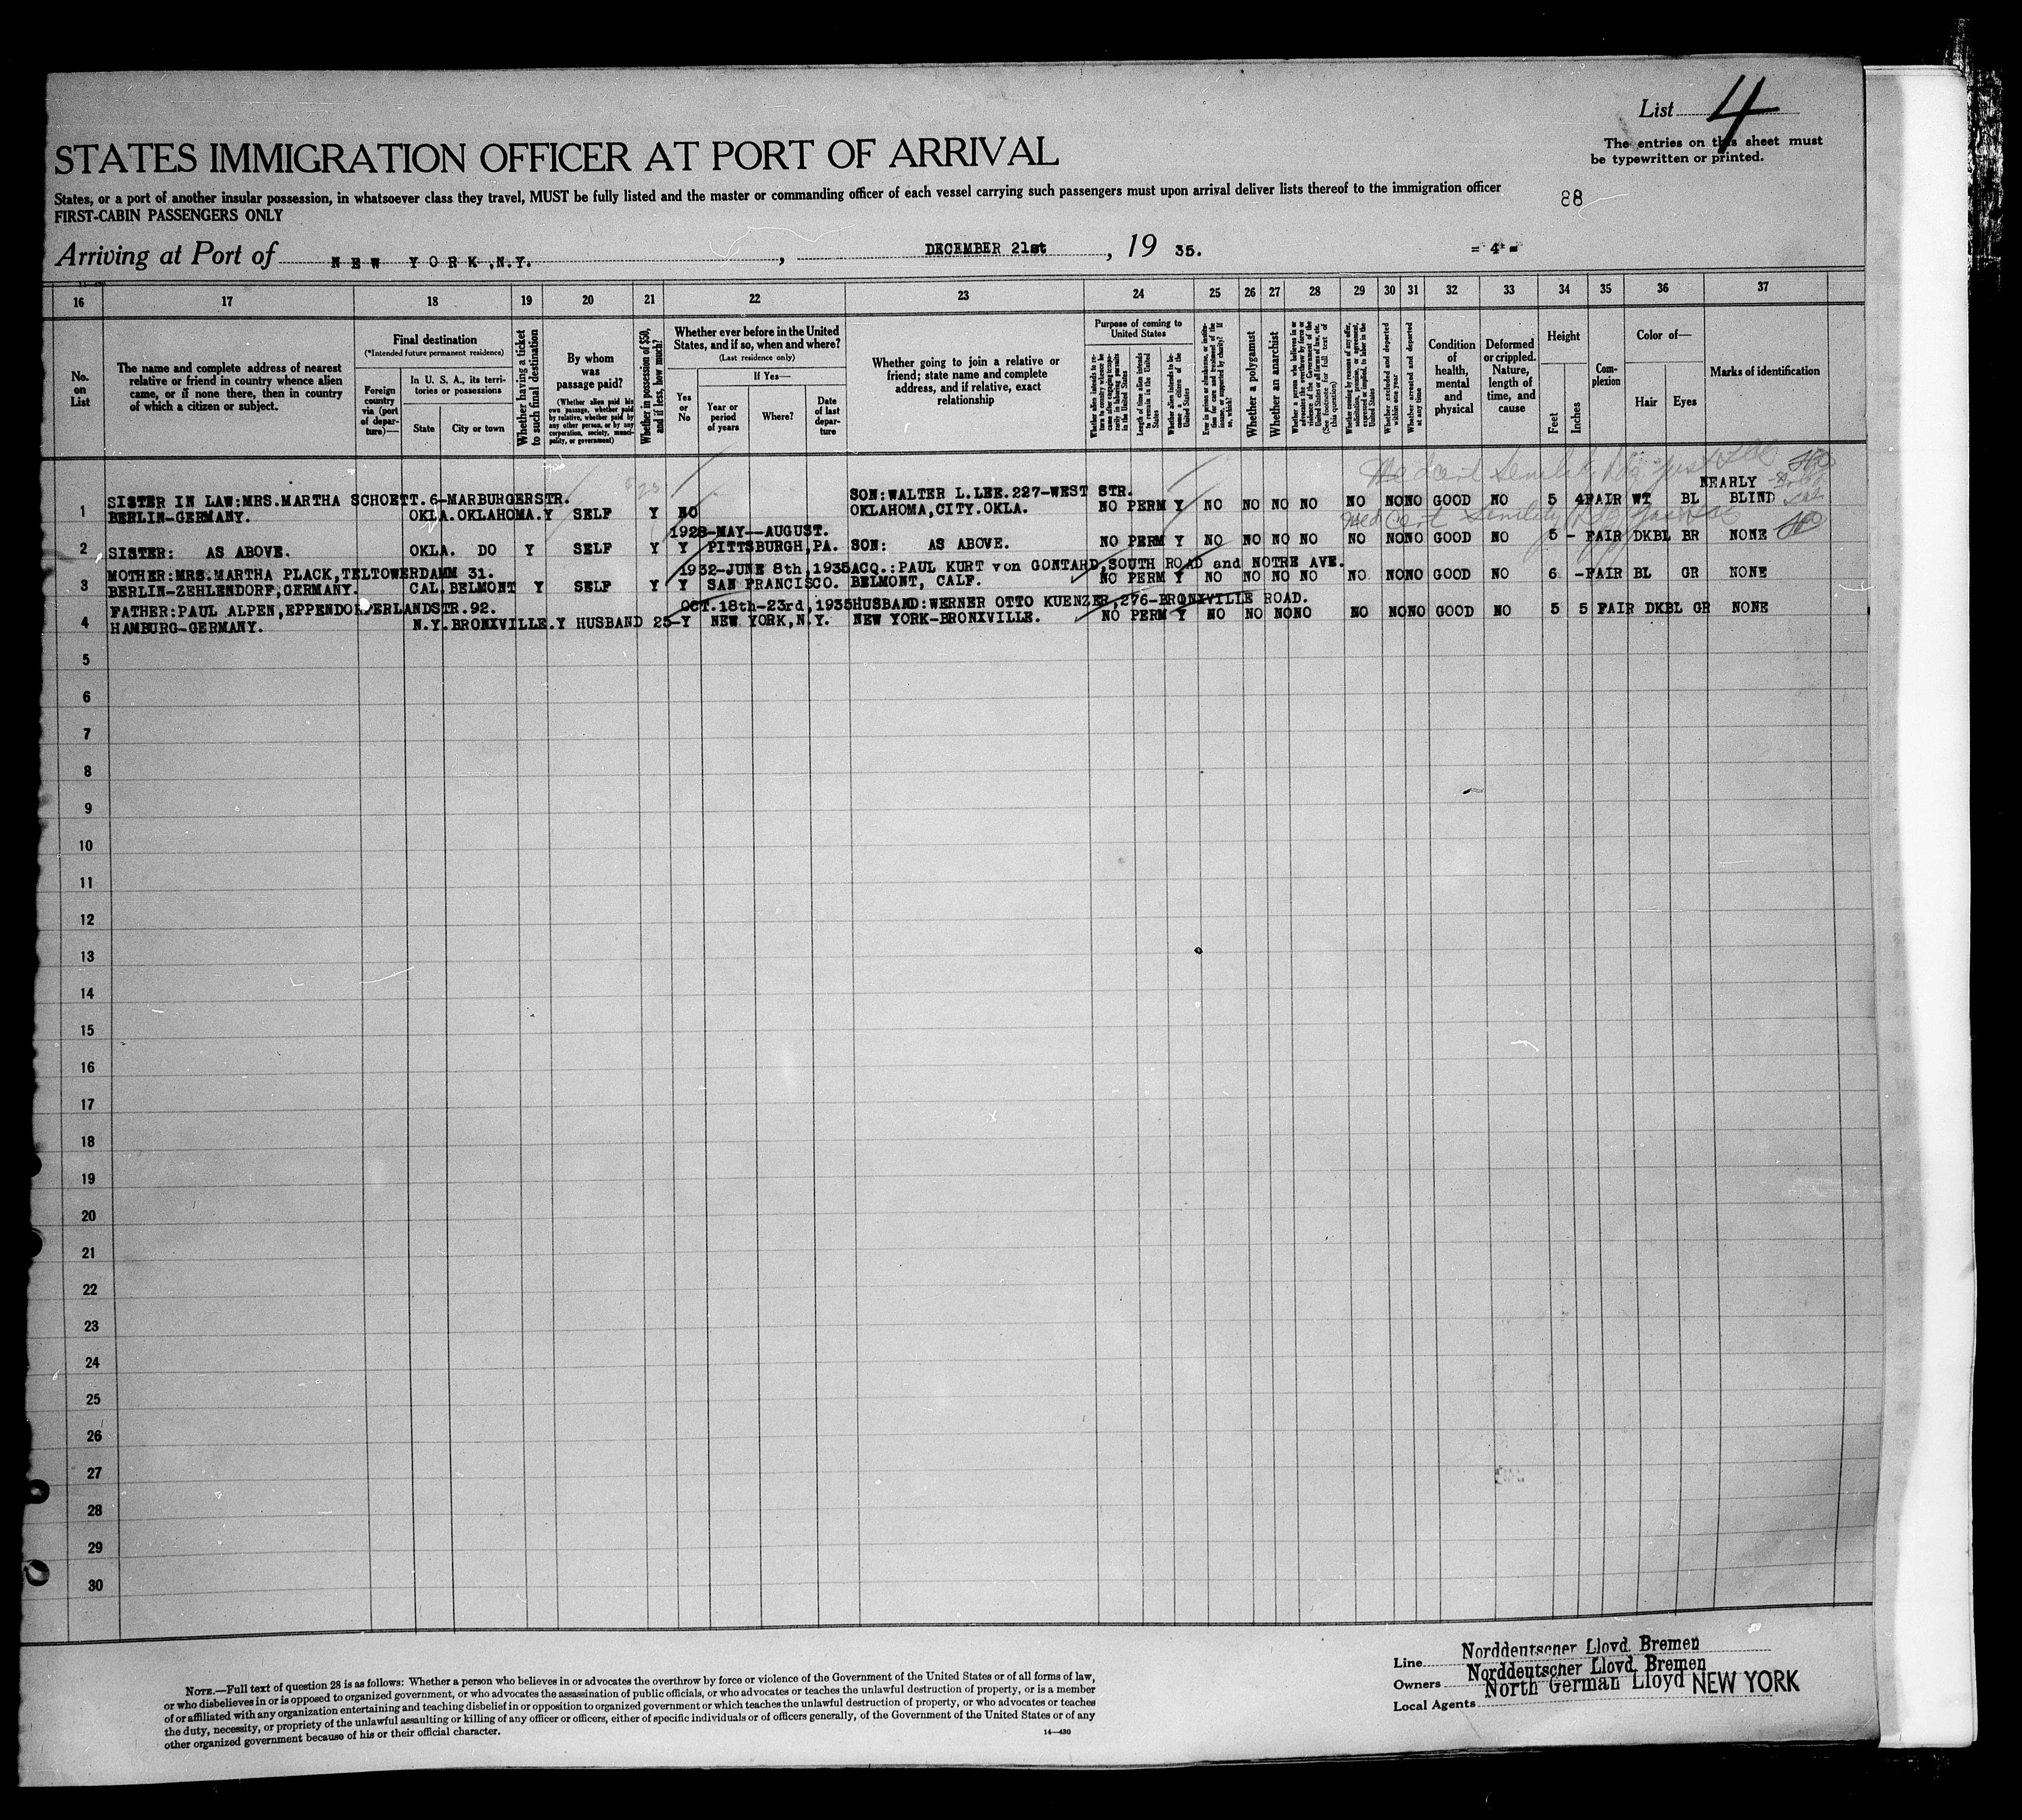 List 4
The entries on this sheet must
be typewritten or printed.
STATES IMMIGRATION OFFICER AT PORT OF ARRIVAL
States, or a port of another insular possession, in whatsoever class they travel, MUST be fully listed and the master or commanding officer of each vessel carrying such passengers must upon arrival deliver lists thereof to the immigration officer
88
FIRST-CABIN PASSENGERS ONLY
Arriving at Port of NEW YORK, N.Y. , DECEMBER 21st , 19 35.
= 4 =
16 17 18 19 20 21 22 23 24 25 26 27 28 29 30 31 32 33 34 35 36 37
No.
on
List
The name and complete address of nearest
relative or friend in country whence alien
came, or if none there, then in country
of which a citizen or subject.
Final destination
(*Intended future permanent residence)
Foreign
country
via (port
of depar-
ture)—
In U. S. A., its terri-
tories or possessions
State
City or town
Whether having a ticket
to such final destination
By whom
was
passage paid?
(Whether alien paid his
own passage, whether paid
by relative, whether paid by
any other person, or by any
corporation, society, munici-
pality, or government)
Whether in possession of $50,
and if less, how much?
Whether ever before in the United
States, and if so, when and where?
(Last residence only)
Yes
or
No
If Yes—
Year or
period
of years
Where?
Date
of last
depar-
ture
Whether going to join a relative or
friend; state name and complete
address, and if relative, exact
relationship
Purpose of coming to
United States
Length of time alien intends
to remain in the United
States
Whether alien intends to be-
come a citizen of the
United States
Whether a polygamist
Whether an anarchist
Whether arrested and deported
at any time
Condition
of
health,
mental
and
physical
Deformed
or crippled.
Nature,
length of
time, and
cause
Height
Feet
Inches
Com-
plexion
Color of—
Hair
Eyes
Marks of identification
1 SISTER IN LAW:MRS.MARTHA SCHOETT.6-MARBURGERSTR. SON:WALTER L.LEE.227-WEST STR. NEARLY
BERLIN-GERMANY. OKLA.OKLAHOMA.Y SELF Y NO OKLAHOMA,CITY.OKLA. NO PERM Y NO NO NO NO NO NONO GOOD NO 5 4 FAIR WT BL BLIND
1928-MAY--AUGUST.
2 SISTER: AS ABOVE. OKLA. DO Y SELF Y Y PITTSBURGH,PA. SON: AS ABOVE. NO PERM Y NO NO NO NO NO NONO GOOD NO 5 - FAIR DKBL BR NONE
MOTHER:MRS.MARTHA PLACK,TELTOWERDAMM 31. 1932-JUNE 8th,1935 ACQ.:PAUL KURT von GONTARD,SOUTH ROAD and NOTRE AVE.
3 BERLIN-ZEHLENDORF,GERMANY. CAL.BELMONT Y SELF Y Y SAN FRANCISCO. BELMONT, CALF. NO PERM Y NO NO NO NO NO NONO GOOD NO 6 - FAIR BL GR NONE
FATHER:PAUL ALPEN,EPPENDORFERLANDSTR.92. OCT.18th-23rd,1935 HUSBAND:WERNER OTTO KUENZER,276-BRONXVILLE ROAD.
4 HAMBURG-GERMANY. N.Y.BRONXVILLE.Y HUSBAND 25-Y NEW YORK,N.Y. NEW YORK-BRONXVILLE. NO PERM Y NO NO NONO NO NONO GOOD NO 5 5 FAIR DKBL GR NONE
5
6
7
8
9
10
11
12
13
14
15
16
17
18
19
20
21
22
23
24
25
26
27
28
29
30
NOTE.—Full text of question 28 is as follows: Whether a person who believes in or advocates the overthrow by force or violence of the Government of the United States or of all forms of law,
or who disbelieves in or is opposed to organized government, or who advocates the assassination of public officials, or who advocates or teaches the unlawful destruction of property, or is a member
of or affiliated with any organization entertaining and teaching disbelief in or opposition to organized government or which teaches the unlawful destruction of property, or who advocates or teaches
the duty, necessity, or propriety of the unlawful assaulting or killing of any officer or officers, either of specific individuals or of officers generally, of the Government of the United States or of any
other organized government because of his or their official character.
14—430
Line Norddeutscher Lloyd. Bremen
Owners Norddeutscher Lloyd. Bremen
Local Agents North German Lloyd NEW YORK